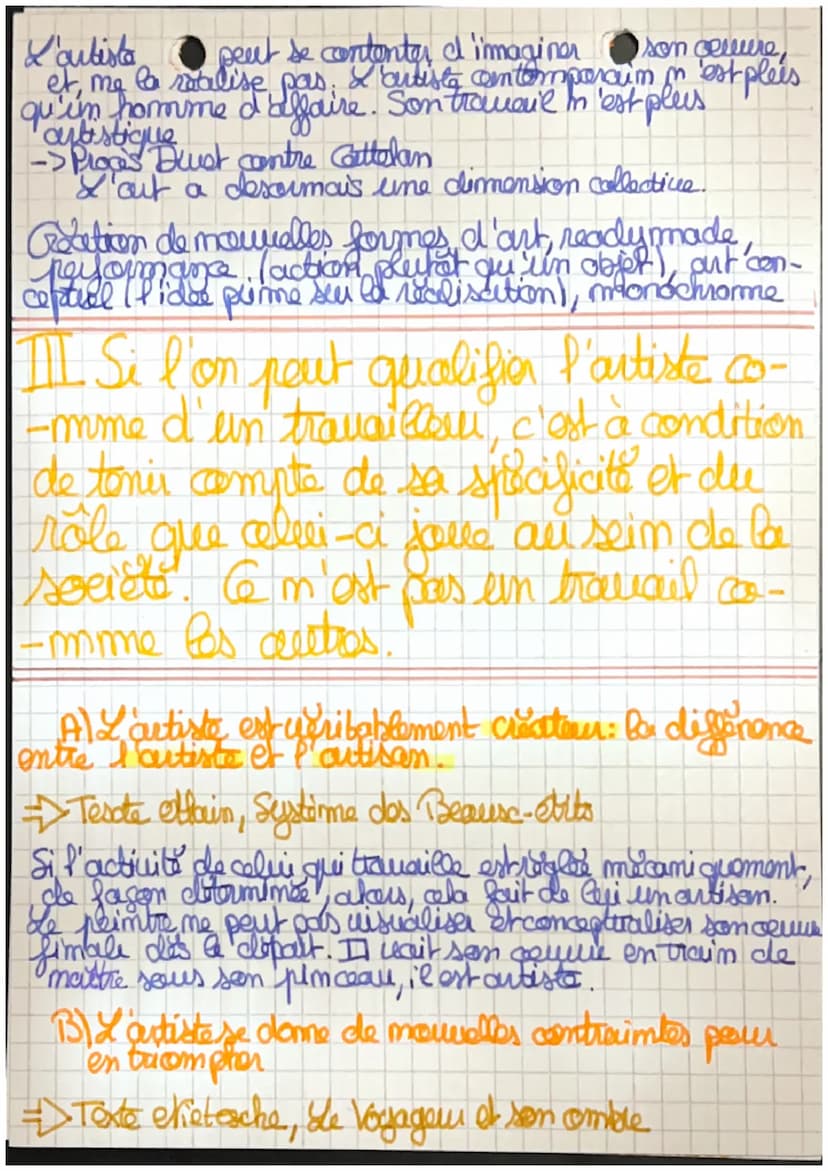 L'artiste peut se contenter d'imaginer son œuvre,
et, ne la réalise pas. L'artiste contemporain n'est plus
qu'un homme d'affaire. Son travail n'est plus
artistique
-> Procès Druet contre Cattelan
L'art a desormais une dimension collective.
Création de nouvelles formes d'art, readymade,
performance (action plutôt qu'un objet), art con-
ceptuel (l'idée prime sur la réalisation), monochrome
III Si l'on peut qualifier l'artiste co-
-mme d'un travailleur, c'est à condition
de tenir compte de sa spécificité et du
rôle que celui-ci joue au sein de la
société. Ce n'est pas un travail co-
-mme les autres.
A) L'artiste est véritablement créateur: la différence
entre l'artiste et l'artisan.
=> Texte Alain, Système des Beaux-Arts
Si l'activité de celui qui travaille est réglée mécaniquement,
de façon déterminée, alors, cela fait de lui un artisan.
Le peintre ne peut pas visualiser et conceptualiser son œuvre
finale dès le départ. Il voit son œuvre en train de
naître sous son pinceau, il est artiste.
B) L'artiste se donne de nouvelles contraintes pour
en triompher
=> Texte Nietzsche, Le Voyageur et son ombre